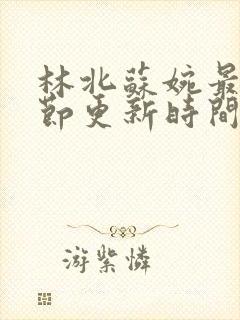 林北蘇婉最
節更新時間
游紫憐